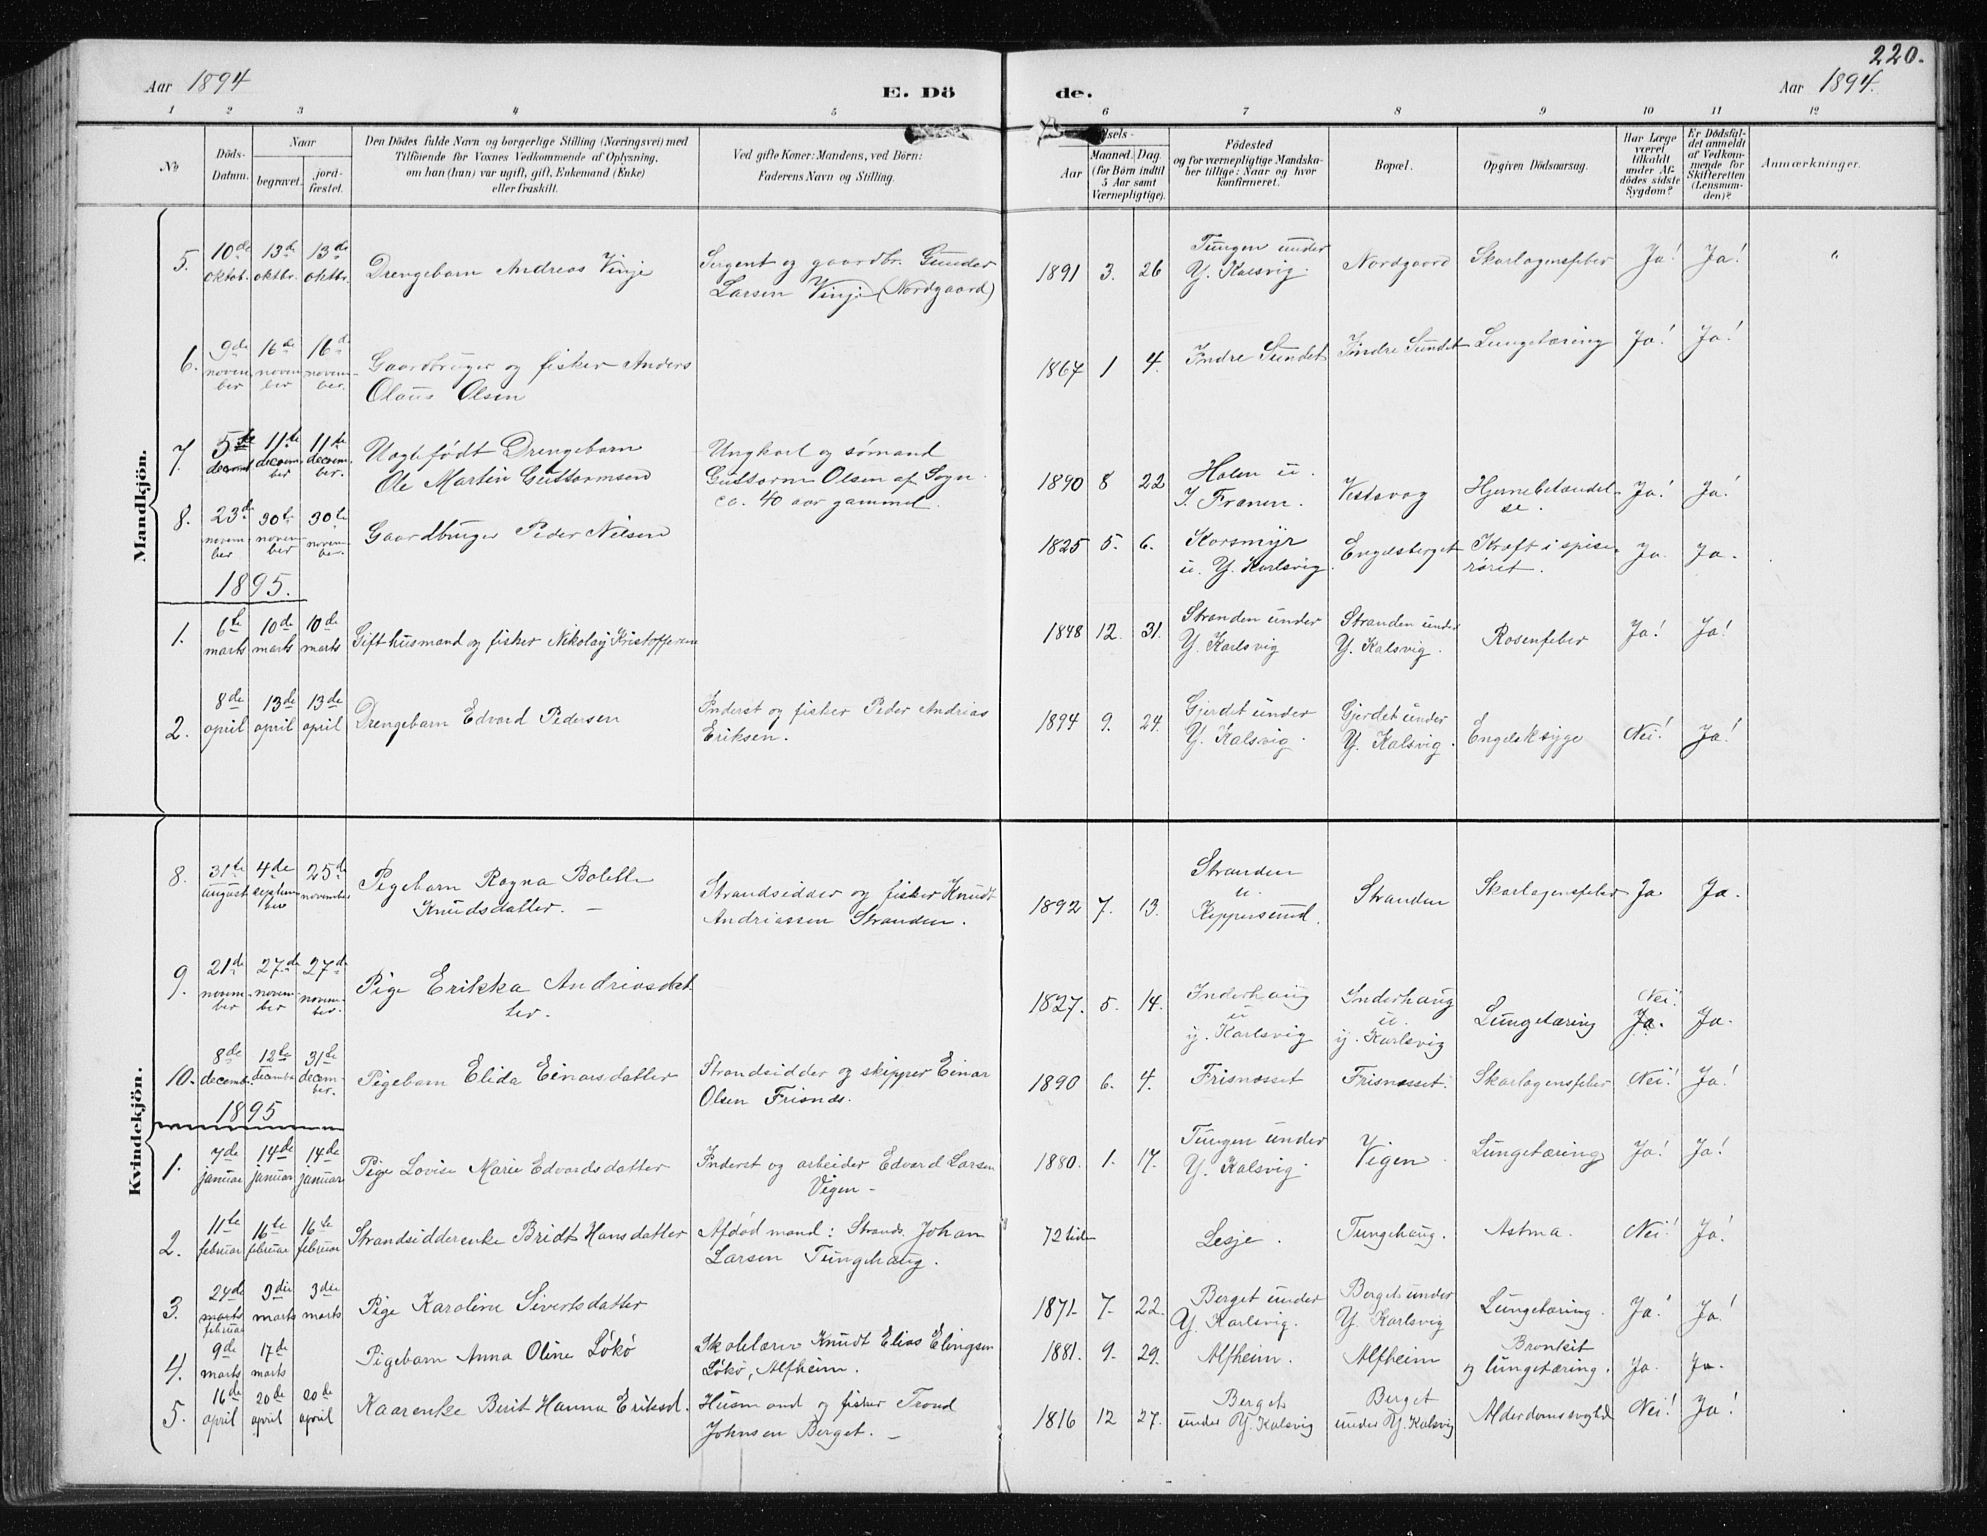 220.
Aar 1894
E. Dö
de.
Aar 1894.
1 2 3 4 5 6 7 8 9 10 11 12
No
Döds-
Datum.
Naar
begravet.
jord-
fæstet.
Den Dödes fulde Navn og borgerlige Stilling (Næringsvei) med
Tilföiende for Voxnes Vedkommende af Oplysning,
om han (hun) var ugift, gift, Enkemand (Enke)
eller fraskilt.
Ved gifte Koner: Mandens, ved Börn:
Faderens Navn og Stilling.
dsels-
Aar
Maaned.
Dag.
(for Börn indtil
5 Aar samt
Værnepligtige).
Födested
og for værnepligtige Mandska-
ber tillige: Naar og hvor
konfirmeret.
Bopæl.
Opgiven Dödsaarsag.
Har Læge
været
tilkaldt
under Af-
dödes sidste
Sygdom?
Er Dödsfal-
det anmeldt
af Vedkom-
mende for
Skifteretten
(Lensman-
den)?
Anmærkninger.
Mandkjön.
5. 10de oktob. 13de oktbr. 13de oktbr. Drengebarn Andreas Vinje Sergent og gaardbr. Gunder Larsen Vinje (Nordgaard) 1891 3. 26 Tungen under Y. Kalsvig. Nordgaard Skarlagensfeber Ja! Ja! "
6. 9de november 16de november 16de november. Gaardbruger og fisker Anders Olaus Olsen 1867 1 4. Indre Sundet Indre Sundet Lungetæring Ja! Ja!
7. 5te decembr 11te december 11te december. Uægtefødt Drengebarn Ole Martin Guttormsen Ungkarl og sømand Guttorm Olsen af Sogn ca. 40 aar gammel. 1890 8 22 Holen u. I. Franen. Vestsvag Hjernebetændelse. Ja! Ja!
8. 23de november 30te november 30te november. Gaardbruger Peder Nilsen 1825 5. 6. Korsmyr u. Y. Karlsvig. Engelsberget Kræft i spiserøret. Ja. Ja.
1895.
1. 6te marts 10de marts 10de marts Gift husmand og fisker Nikolay Kristoffersen 1848 12. 31. Stranden under Y. Karlsvig Stranden under Y. Kalsvig. Rosenfeber Ja! Ja!
2. 8de april 13de april 13de april Drengebarn Edvard Pedersen Inderst og fisker Peder Andrias Eriksen. 1894 9. 24. Gjerdet under Y. Kalsvig. Gjerdet under Y. Kalsvig. Engelsksyge Nei! Ja!
Kvindekjön.
8. 31te august 4de september 25de november Pigebarn Ragna Bolette Knudsdatter. — Strandsidder og fisker Knudt Andriassen Stranden. 1892 7. 13. Stranden u. Keppersund. Stranden Skarlagensfeber Ja Ja.
9. 21de november 27de november 27de november. Pige Erikka Andriasdatter. 1827. 5. 14. Inderhaug u y. Karlsvig Inderhaug u. y. Karlsvig Lungetæring Nei! Ja. Ja.
10. 8de decemb. 12te decembr 31te december. Pigebarn Elida Einarsdatter Strandsidder og skipper Einar Olsen Frisnds. 1890 6. 4. Frisnæsset Frisnæsset. Skarlagensfeber Nei! Ja!
1895
1. 7de januar 14de januar 14de januar Pige Lovise Marie Edvardsdatter Inderst og arbeider Edvard Larsen Vigen – 1880. 1. 17. Tungen under Y. Kalsvig. Vigen. Lungetæring Ja! Ja!
2. 11te februar 16te februar 16te februar Strandsidderenke Bridt Hansdatter Afdød mand: Strands. Johan Larsen Tungehaug. 72 Lesje. Tungehaug. Astma. Nei! Ja!
3. 24de marts februar 3die marts 3die marts Pige Karoline Sivertsdatter 1871. 7. 22. Berget under Y. Karlsvig. Berget under Y. Karlsvig Lungetæring. Ja! Ja!
4. 9de marts 17de marts Pigebarn Anna Oline Løkø Skolelærer Knudt Elias Elingsen Løkø, Alfheim. 1881. 9. 29. Alfheim. Alfheim Bronkit og lungetæring. Ja. Ja.
5. 16de april 20de april 20de april Kaarenke Berit Hanna Eriksd. Husmand og fisker Trond Johnsen Berget. – 1816 12 27. Berget under Y. Kalsvig Berget under Y. Kalsvig Alderdomssvaghed Nei! Ja!